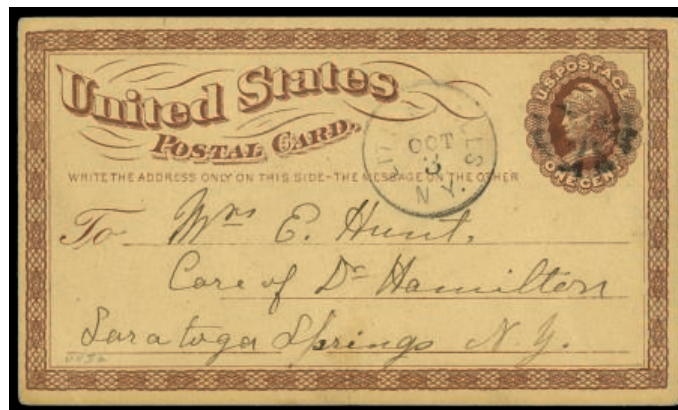 United States
POSTAL CARD.
U.S. POSTAGE
ONE CENT
WRITE THE ADDRESS ONLY ON THIS SIDE-THE MESSAGE ON THE OTHER
OCT
3
N.Y.
To Mrs E. Hunt,
Care of Dr Hamilton
Saratoga Springs N.Y.